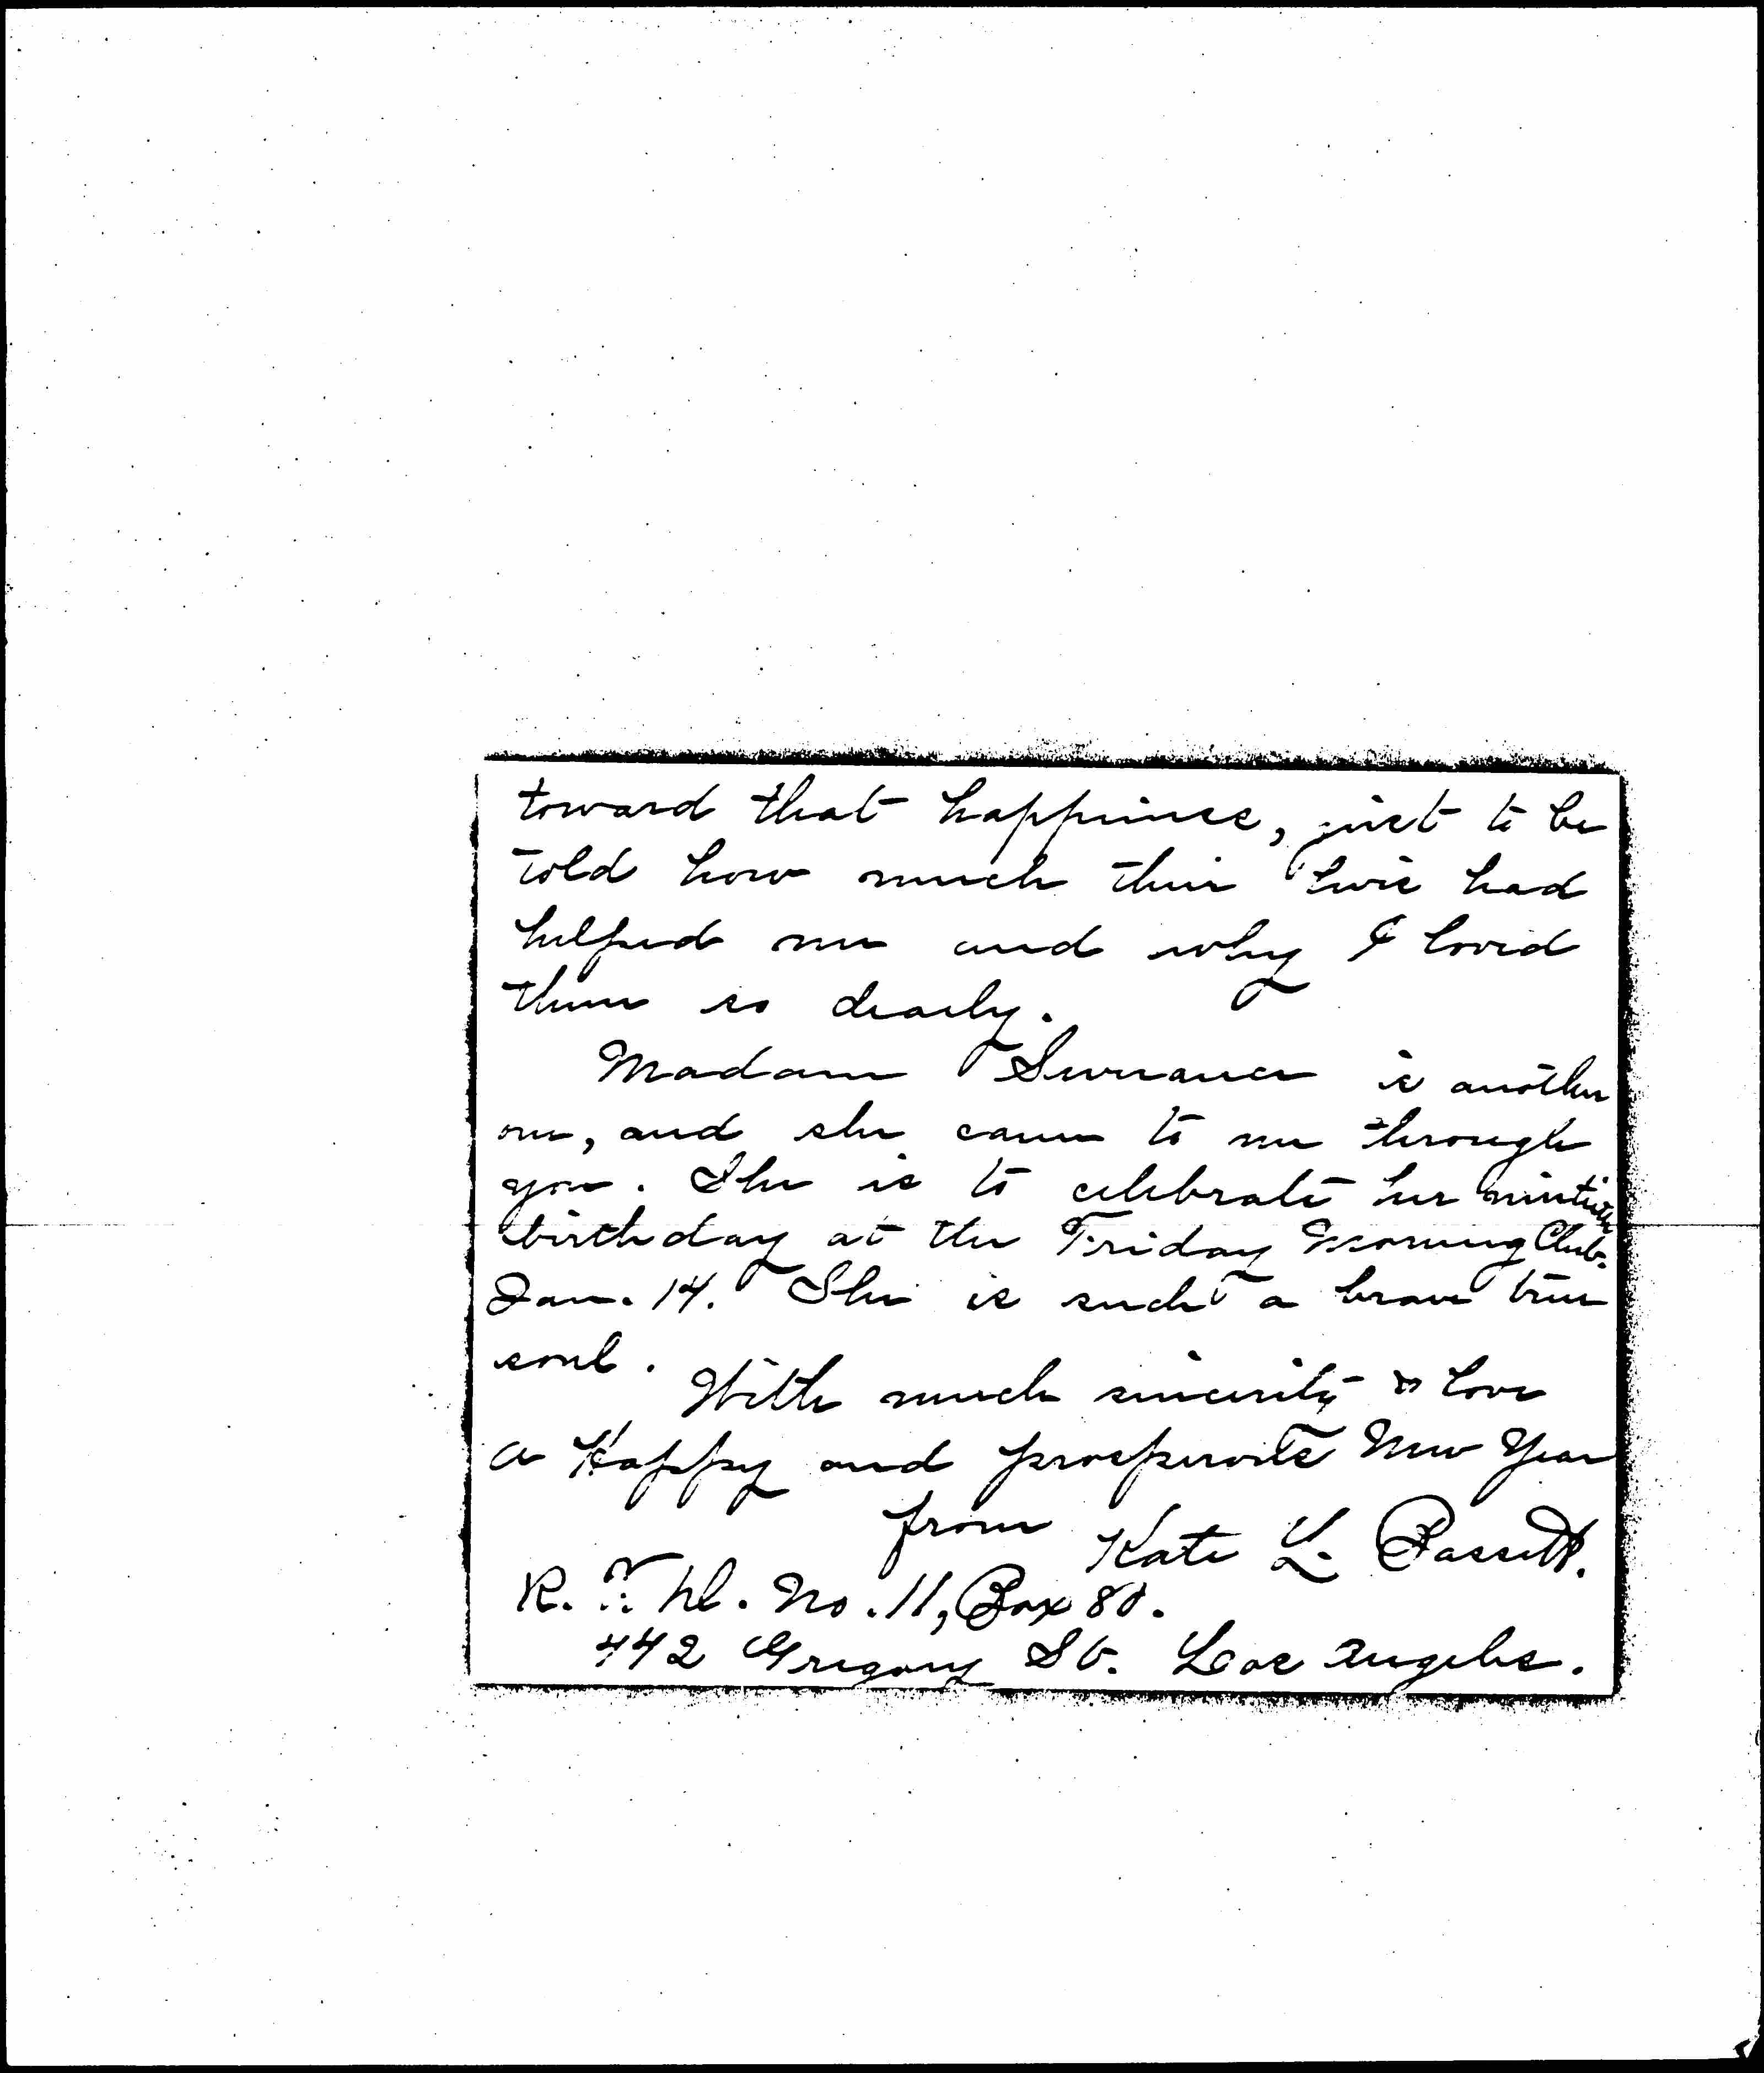 toward that happiness, just to be
told how much their lives had
helped me and why I loved
them so dearly.
Madam Severance is another
one, and she came to me through
you. She is to celebrate her nintieth
birthday at the Friday Morning Club.
Jan. 14. She is such a brave true
soul.
With much sincerity & love
a Happy and prosperous New Year
from Kate L. Bassett.
R. F. D. No. 11, Box 80.
442 Gregory St. Los Angeles.